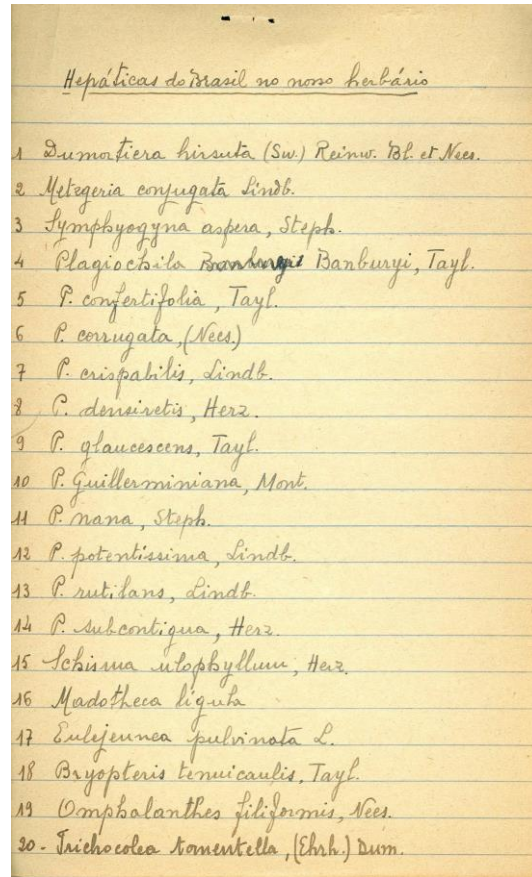 Hepáticas do Brasil no nosso herbário
1 Dumortiera hirsuta (Sw.) Reinw. Bl. et Nees.
2 Metzgeria conjugata Lindb.
3 Symphyogyna aspera, Steph.
4 Plagiochila Banburyi, Tayl.
5 P. confertifolia, Tayl.
6 P. corrugata, (Nees.)
7 P. crispabilis, Lindb.
8 P. densiretis, Herz.
9 P. glaucescens, Tayl.
10 P. Guillerminiana, Mont.
11 P. nana, Steph.
12 P. potentissima, Lindb.
13 P. rutilans, Lindb.
14 P. subcontigua, Herz.
15 Schisma ulophyllum, Herz.
16 Madotheca ligula
17 Eulejeunea pulvinata L.
18 Bryopteris tenuicaulis, Tayl.
19 Omphalanthes filiformis, Nees.
20 - Trichocolea tomentella, (Ehrh.) Dum.